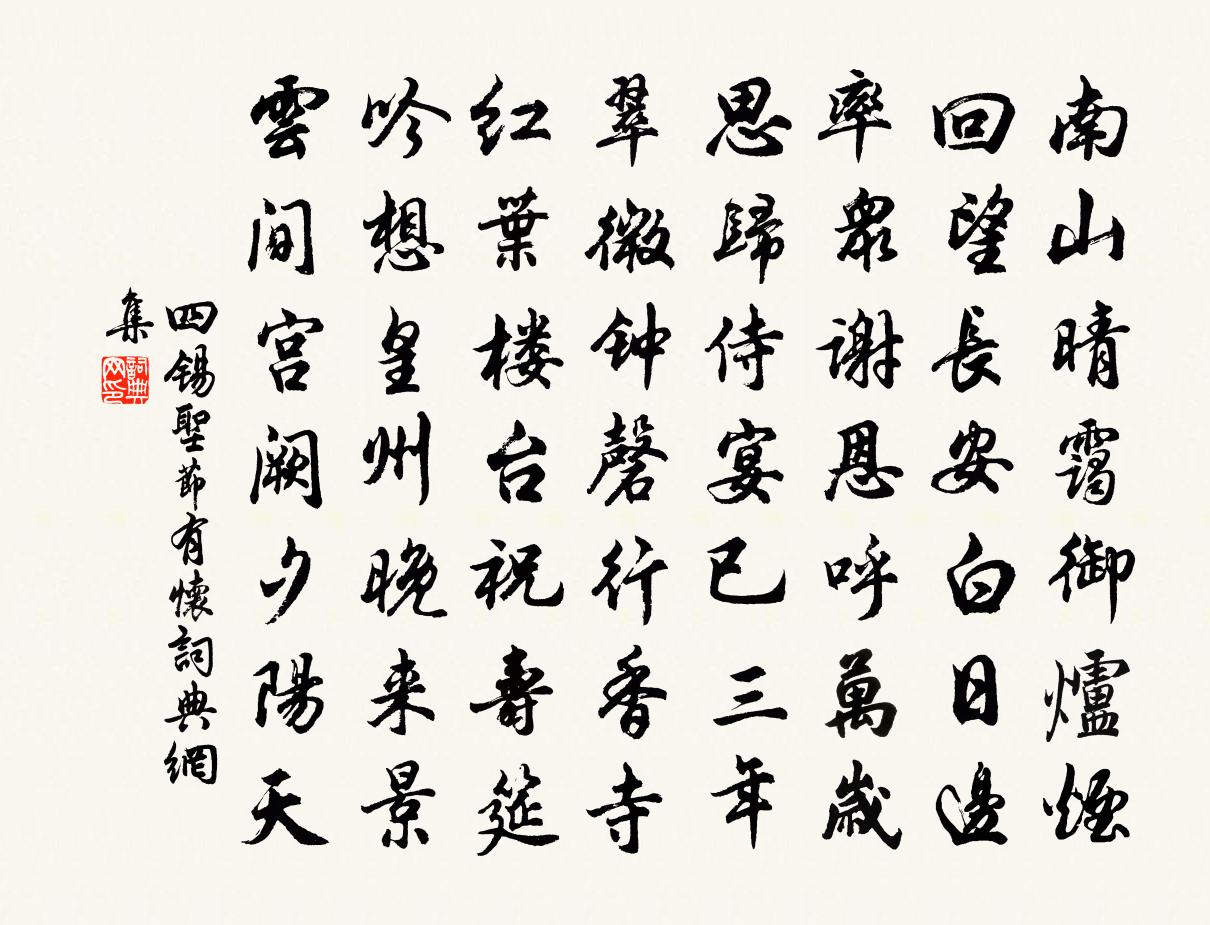 南山晴靄御爐煙
回望長安白日邊
率眾謝恩呼萬歲
思歸侍宴已三年
翠微钟磬行香寺
红葉楼台祝壽筵
吟想皇州晚来景
雲间宫阙夕陽天
四锡聖節有懷詞典網
集
詞典
网印